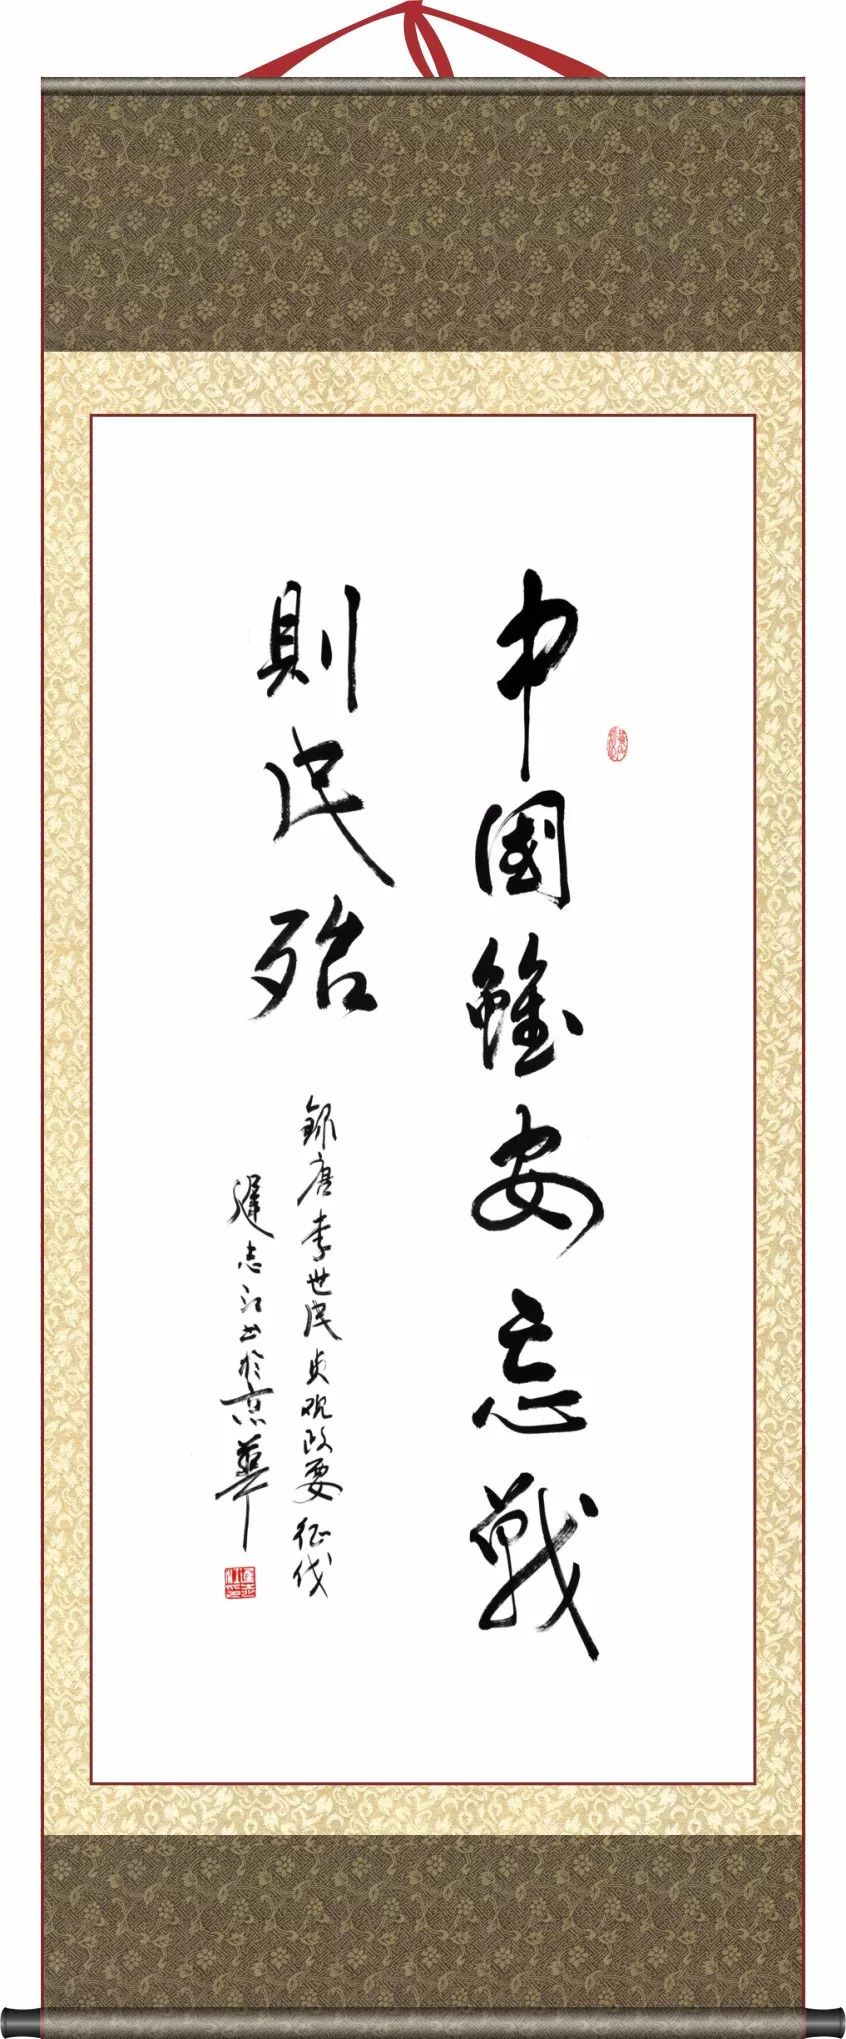 中國雖安忘戰
則民殆
錄唐李世民貞观政要征伐
遲志江书於京華